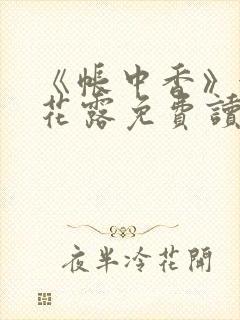 《帳中香》
花露免費讀
夜半冷花開